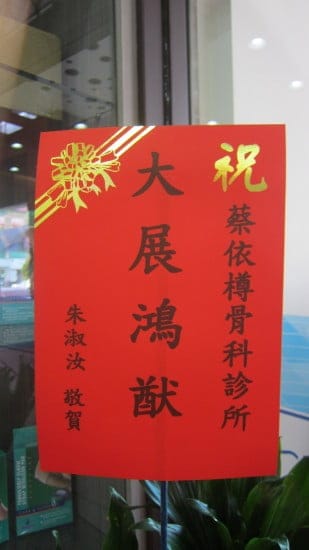 祝
蔡依樽骨科診所
大展鴻猷
朱淑汝 敬賀